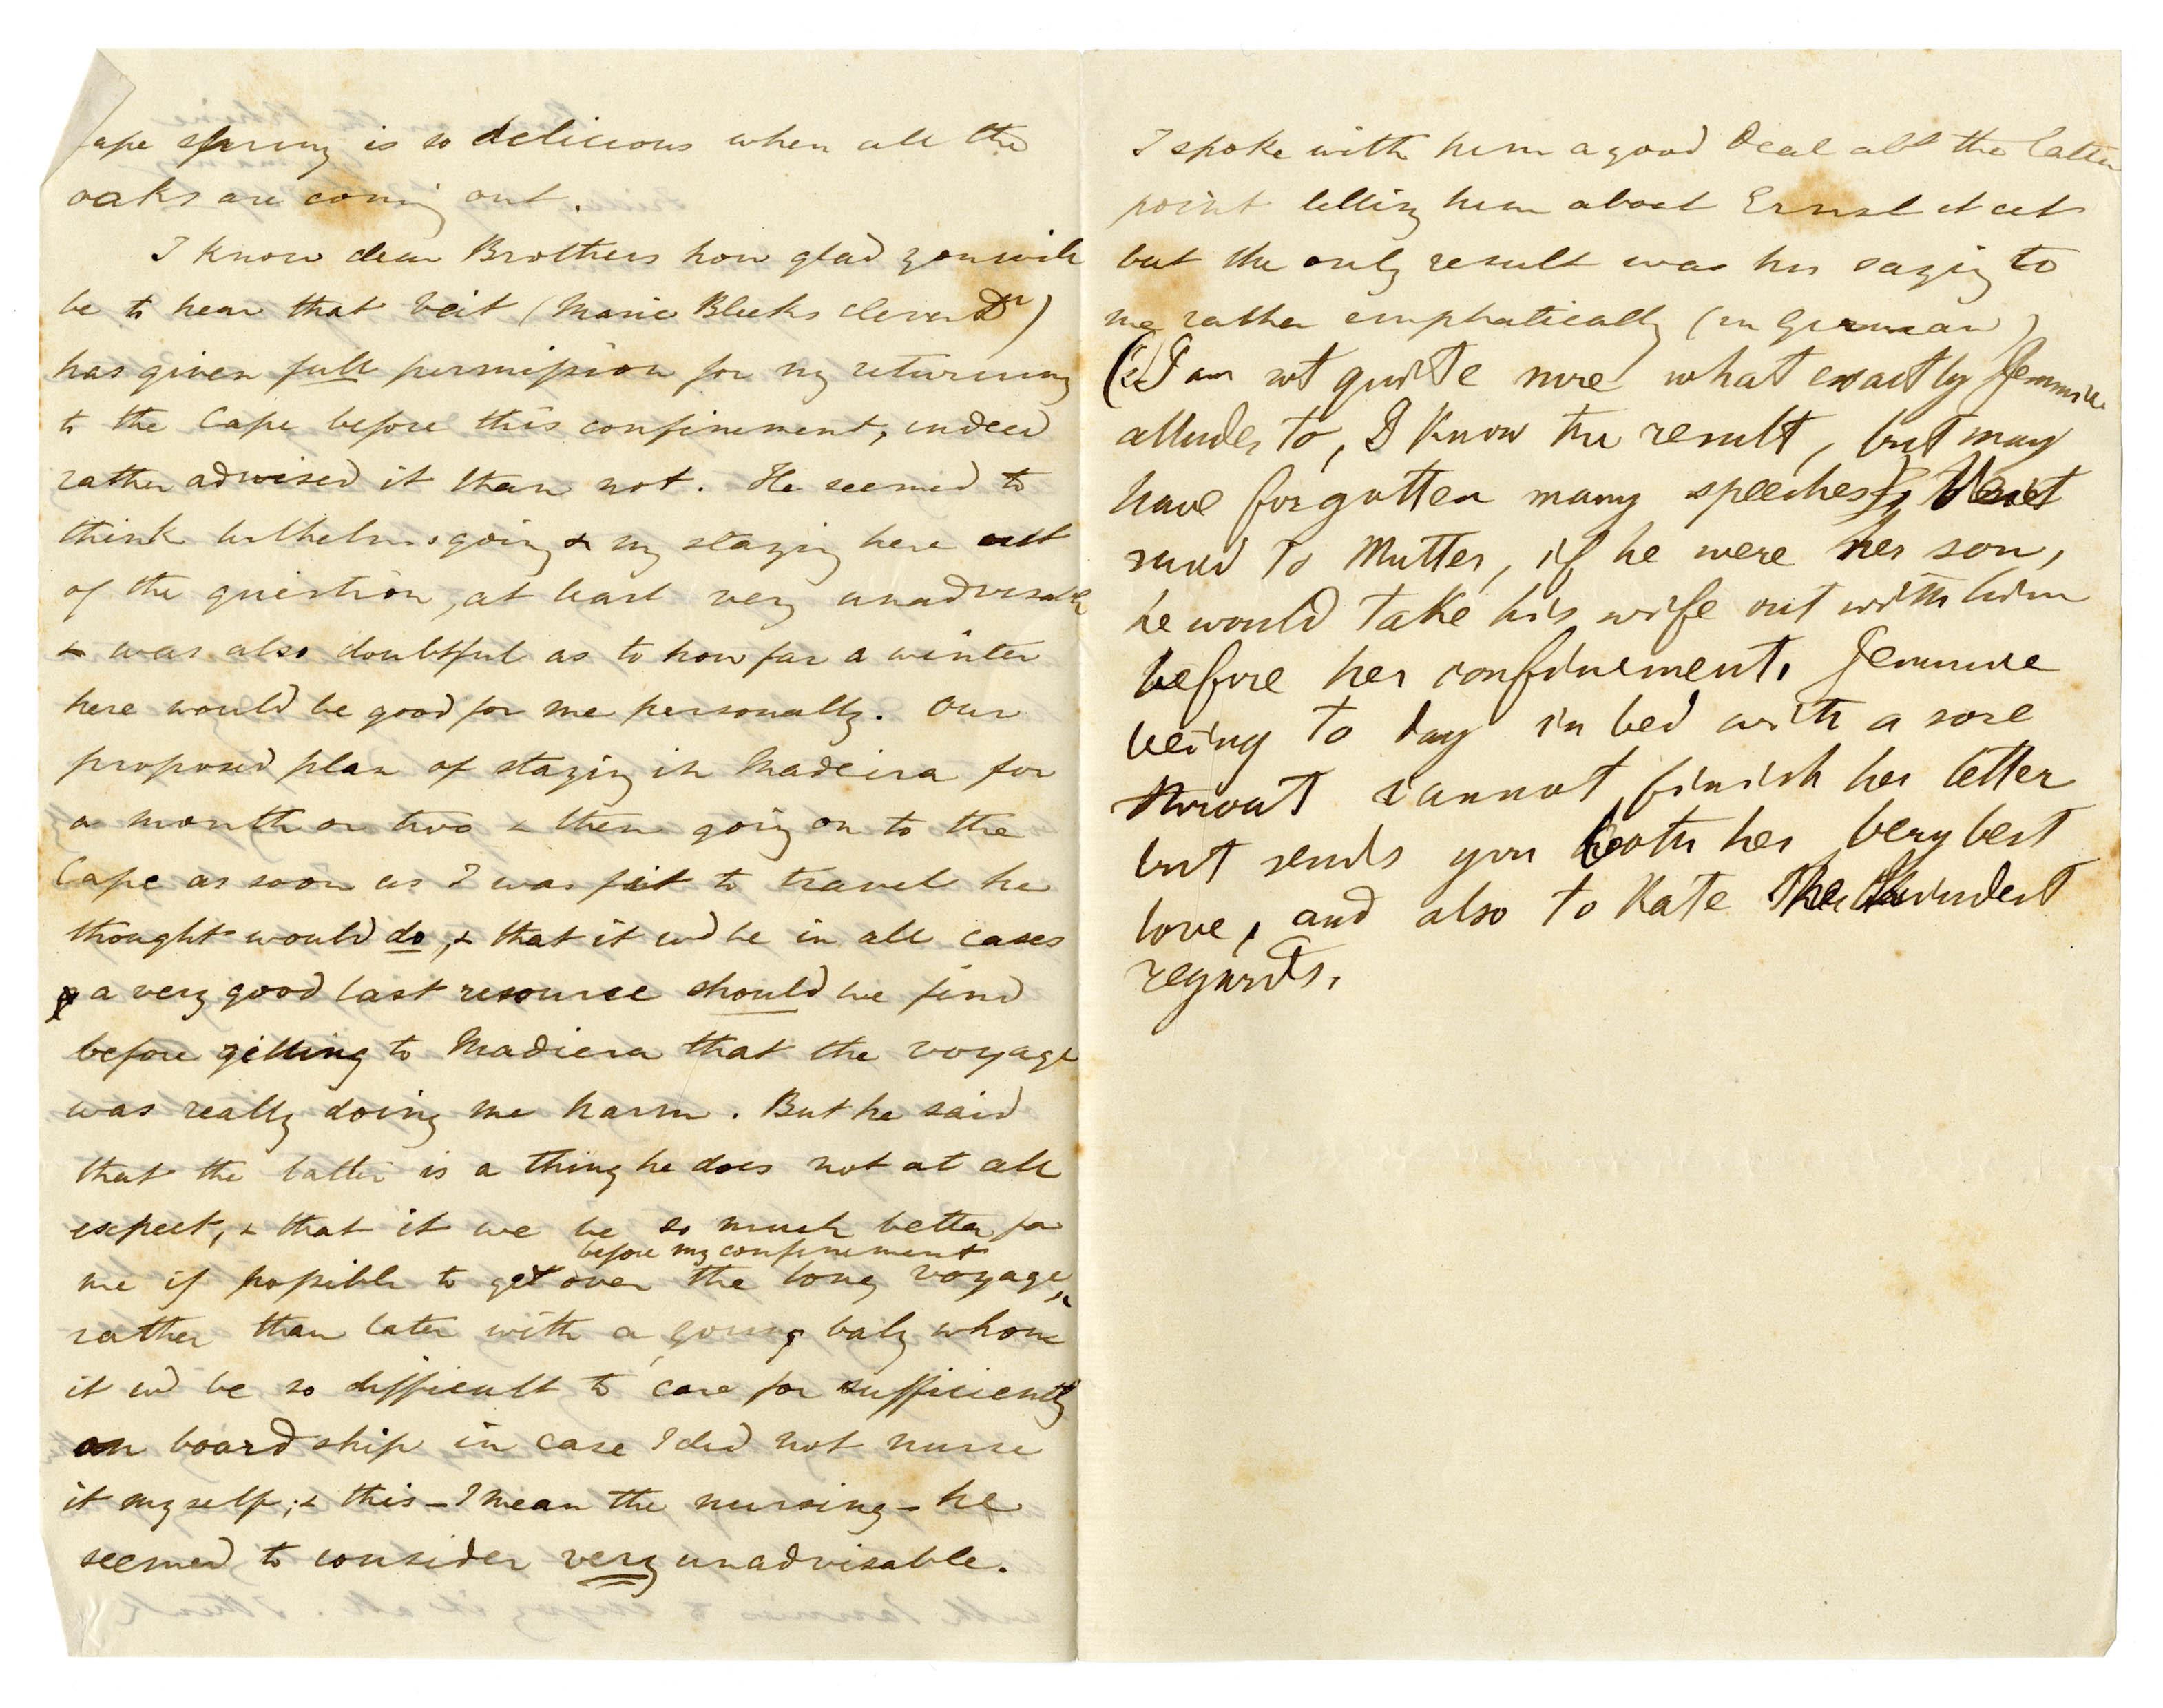 ape spring is so delicious when all the
oaks are coming out.
I know dear Brothers how glad you will
be to hear that Veit (Marie Bleeks clever Dr)
has given full permission for my returning
to the Cape before this confinement, indeed
rather advised it than not. He seemed to
think Wilhelm's going & my staying here out
of the question, at least very unadvisable
& was also doubtful as to how far a winter
here would be good for me personally. Our
proposed plan of staying in Madeira for
a month or two & then going on to the
Cape as soon as I was fit to travel he
thought would do, & that it wd be in all cases
a very good last resource should we find
before getting to Madiera that the voyage
was really doing me harm. But he said
that the latter is a thing he does not at all
expect, & that it wd be so much better for
before my confinement
me if possible to get over the long voyage,
rather than later with a young baby whom
it wd be so difficult to care for sufficiently
on board ship in case I did not nurse
it myself; & this – I mean the nursing – he
seemed to consider very unadvisable.
I spoke with him a good deal abt the latter
point telling him about Ernst et cet
but the only result was his saying to
me rather emphatically (in German)
(I am not quite sure what exactly Jemmie
alludes to, I know the result, but may
have forgotten many speeches) Veit
said to Mutter, if he were her son,
he would take his wife out with him
before her confinement. Jemmie
being to day in bed with a sore
throat cannot finish her letter
but sends you both her very best
love, and also to Kate the kindest
regards.